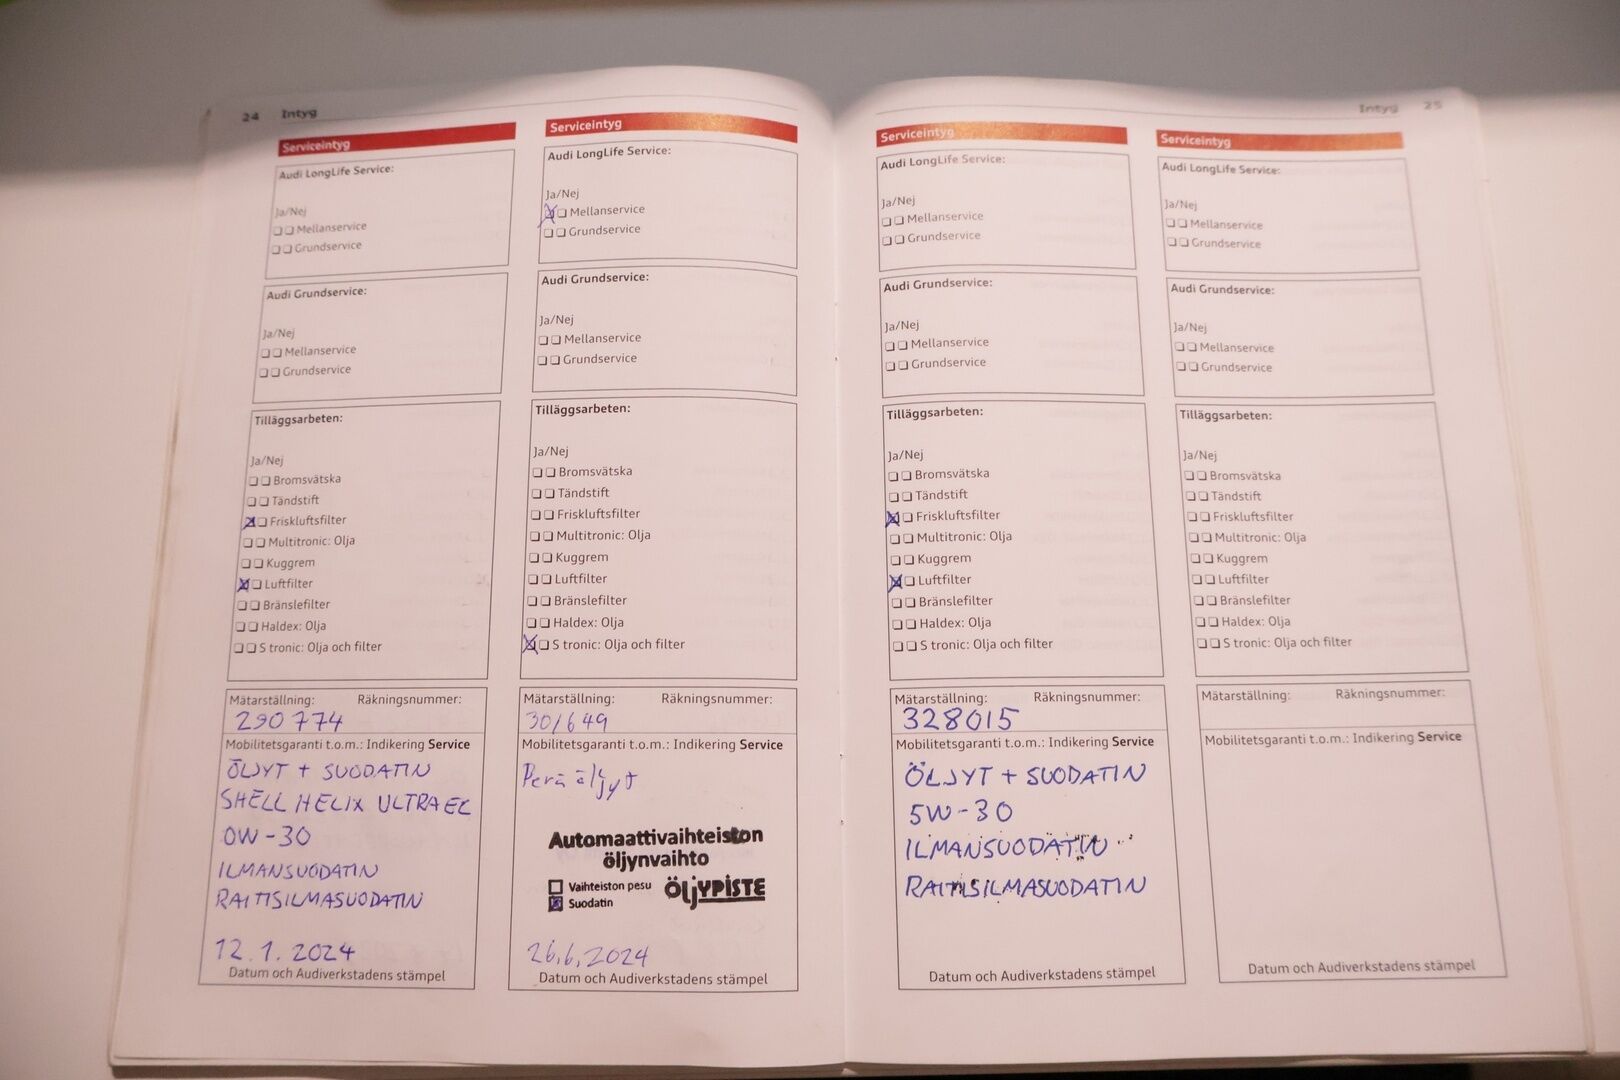 24 Intyg
Serviceintyg
Audi LongLife Service:
Ja/Nej
Mellanservice
Grundservice
Audi Grundservice:
Ja/Nej
Mellanservice
Grundservice
Tilläggsarbeten:
Ja/Nej
Bromsvätska
Tändstift
Friskluftsfilter
Multitronic: Olja
Kuggrem
Luftfilter
Bränslefilter
Haldex: Olja
S tronic: Olja och filter
Mätarställning: Räkningsnummer:
290774
Mobilitetsgaranti t.o.m.: Indikering Service
ÖLJYT + SUODATIN
SHELL HELIX ULTRA ECT
0W-30
ILMANSUODATIN
RAITISILMASUODATIN
12.1.2024
Datum och Audiverkstadens stämpel
Serviceintyg
Audi LongLife Service:
Ja/Nej
Mellanservice
Grundservice
Audi Grundservice:
Ja/Nej
Mellanservice
Grundservice
Tilläggsarbeten:
Ja/Nej
Bromsvätska
Tändstift
Friskluftsfilter
Multitronic: Olja
Kuggrem
Luftfilter
Bränslefilter
Haldex: Olja
S tronic: Olja och filter
Mätarställning: Räkningsnummer:
301649
Mobilitetsgaranti t.o.m.: Indikering Service
Perä öljyt
Automaattivaihteiston
öljynvaihto
Vaihteiston pesu
Suodatin
ÖLJYPISTE
26.6.2024
Datum och Audiverkstadens stämpel
Intyg 25
Serviceintyg
Audi LongLife Service:
Ja/Nej
Mellanservice
Grundservice
Audi Grundservice:
Ja/Nej
Mellanservice
Grundservice
Tilläggsarbeten:
Ja/Nej
Bromsvätska
Tändstift
Friskluftsfilter
Multitronic: Olja
Kuggrem
Luftfilter
Bränslefilter
Haldex: Olja
S tronic: Olja och filter
Mätarställning: Räkningsnummer:
328015
Mobilitetsgaranti t.o.m.: Indikering Service
ÖLJYT + SUODATIN
5W-30
ILMANSUODATIN
RAITISILMASUODATIN
Datum och Audiverkstadens stämpel
Serviceintyg
Audi LongLife Service:
Ja/Nej
Mellanservice
Grundservice
Audi Grundservice:
Ja/Nej
Mellanservice
Grundservice
Tilläggsarbeten:
Ja/Nej
Bromsvätska
Tändstift
Friskluftsfilter
Multitronic: Olja
Kuggrem
Luftfilter
Bränslefilter
Haldex: Olja
S tronic: Olja och filter
Mätarställning: Räkningsnummer:
Mobilitetsgaranti t.o.m.: Indikering Service
Datum och Audiverkstadens stämpel